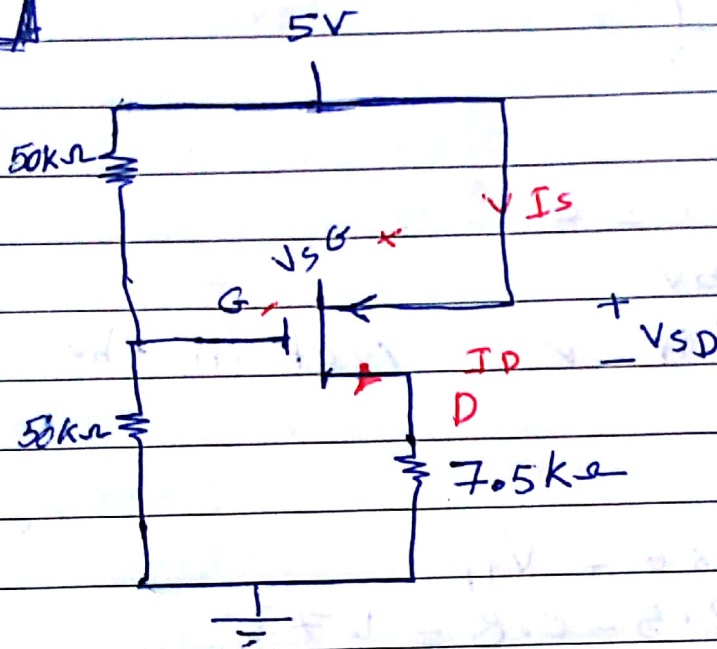 5V
50KΩ
Is
VSG
G
+
VSD
−
ID
D
50KΩ
7.5KΩ